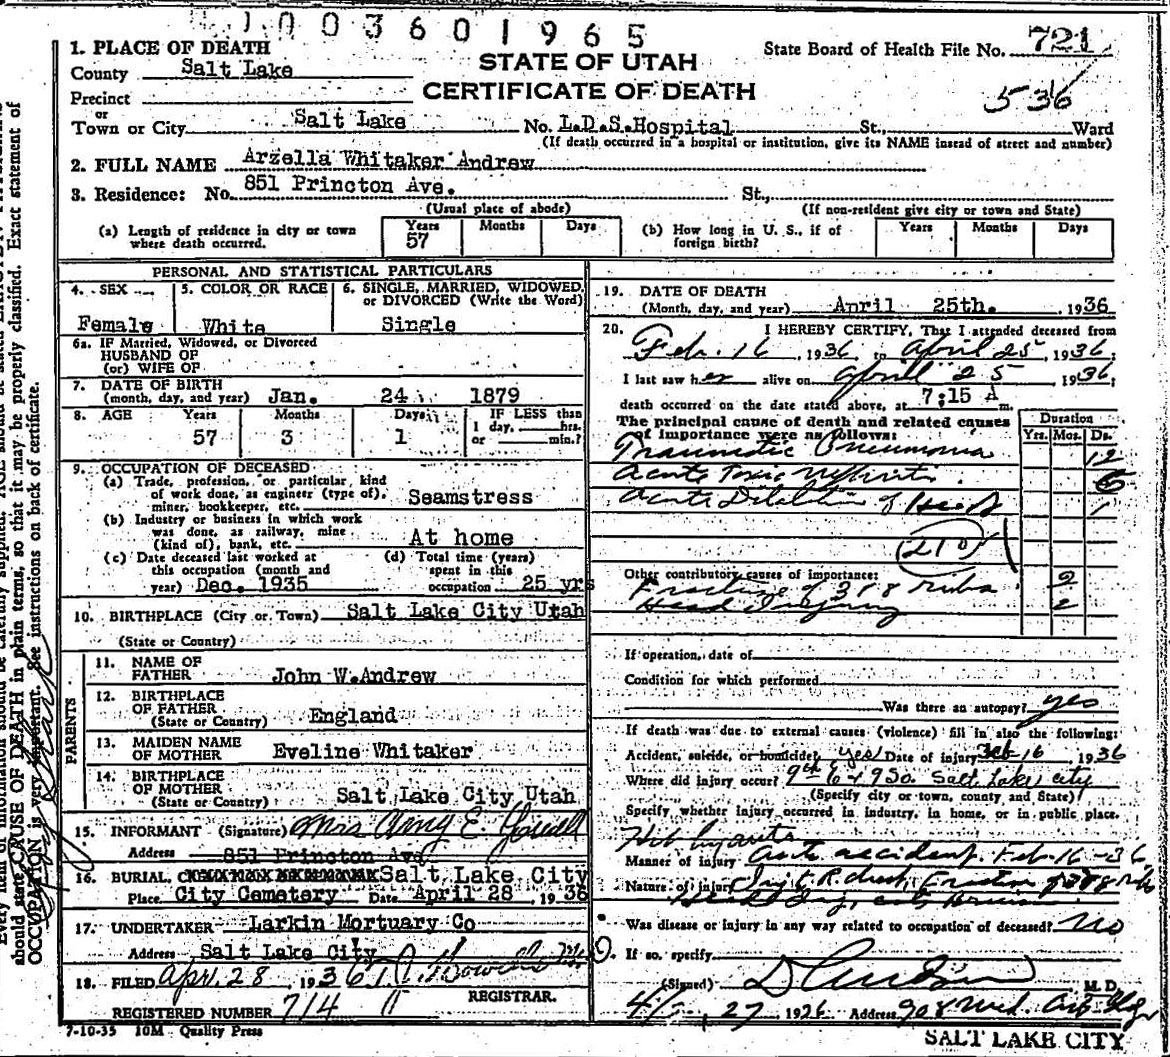 1003601965
1. PLACE OF DEATH
County Salt Lake
Precinct
or
Town or City Salt Lake No. L.D.S.Hospital St., Ward
(If death occurred in a hospital or institution, give its NAME instead of street and number)
STATE OF UTAH
CERTIFICATE OF DEATH
State Board of Health File No. 721
536
2. FULL NAME Arzella Whitaker Andrew
3. Residence: No. 851 Princton Ave. St.,
(Usual place of abode) (If non-resident give city or town and State)
(a) Length of residence in city or town where death occurred.
Years 57 Months Days
(b) How long in U. S., if of foreign birth?
Years Months Days
PERSONAL AND STATISTICAL PARTICULARS
4. SEX Female
5. COLOR OR RACE White
6. SINGLE, MARRIED, WIDOWED, or DIVORCED (Write the Word) Single
6a. IF Married, Widowed, or Divorced
HUSBAND OF
(or) WIFE OF
7. DATE OF BIRTH
(month, day, and year) Jan. 24 1879
8. AGE Years 57 Months 3 Days 1
IF LESS than
1 day, hrs.
or min.?
9. OCCUPATION OF DECEASED
(a) Trade, profession, or particular kind
of work done, as engineer (type of),
miner, bookkeeper, etc. Seamstress
(b) Industry or business in which work
was done, as railway, mine
(kind of), bank, etc. At home
(c) Date deceased last worked at
this occupation (month and
year) Dec. 1935
(d) Total time (years)
spent in this
occupation 25 yrs
10. BIRTHPLACE (City or Town) Salt Lake City Utah
(State or Country)
PARENTS
11. NAME OF
FATHER John W.Andrew
12. BIRTHPLACE
OF FATHER
(State or Country) England
13. MAIDEN NAME
OF MOTHER Eveline Whitaker
14. BIRTHPLACE
OF MOTHER
(State or Country) Salt Lake City Utah
15. INFORMANT (Signature) Mrs Amy E.
Address 851 Princton Ave
16. BURIAL, Salt Lake City
Place City Cemetery Date April 28 1936
17. UNDERTAKER Larkin Mortuary Co
Address Salt Lake City
18. FILED Apr. 28 1936
REGISTRAR.
REGISTERED NUMBER 714
7-10-35 10M Quality Press
19. DATE OF DEATH
(Month, day, and year) April 25th. 1936
20. I HEREBY CERTIFY, That I attended deceased from
Feb. 16, 1936, to April 25, 1936;
I last saw her alive on April 25, 1936;
death occurred on the date stated above, at 7:15 A m.
The principal cause of death and related causes
of importance were as follows:
Duration
Yrs. Mos. Ds.
Traumatic Pneumonia 12
Acute Toxic Nephritis 6
Acute Dilation of Heart 1
(210)
Other contributory causes of importance:
Fracture of 3 & 8 ribs 2
Head Injury 2
If operation, date of
Condition for which performed
Was there an autopsy? yes
If death was due to external causes (violence) fill in also the following:
Accident, suicide, or homicide? yes Date of injury Feb 16, 1936
Where did injury occur? 9th & 950. Salt Lake City
(Specify city or town, county and State)
Specify whether injury occurred in industry, in home, or in public place.
Hit by auto
Manner of injury Auto accident. Feb. 16-36
Nature of injury
Was disease or injury in any way related to occupation of deceased? No
If so, specify
(Signed) M. D.
4/27 1936 Address 908 Med. Arts Bldg
SALT LAKE CITY
should state CAUSE OF DEATH in plain terms, so that it may be properly classified. Exact statement of
OCCUPATION is very important. See instructions on back of certificate.